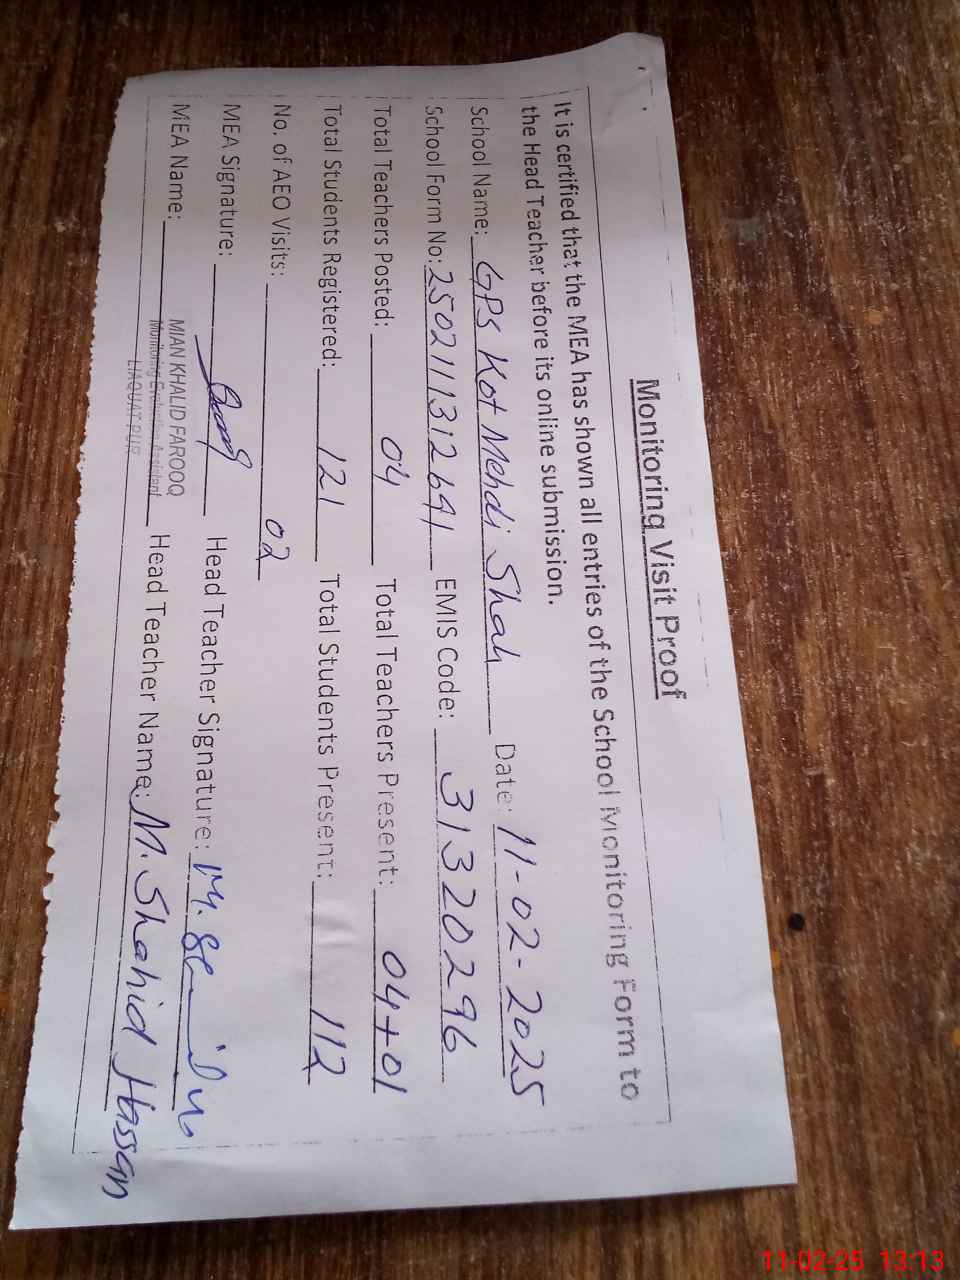 Monitoring Visit Proof
It is certified that the MEA has shown all entries of the School Monitoring Form to
the Head Teacher before its online submission.
School Name: GPS Kot Mehdi Shah Date: 11-02-2025
School Form No: 2502111312691 EMIS Code: 31320296
Total Teachers Posted: 04 Total Teachers Present: 04+01
Total Students Registered: 121 Total Students Present: 112
No. of AEO Visits: 02
MEA Signature: Head Teacher Signature:
MEA Name: MIAN KHALID FAROOQ Head Teacher Name: M. Shahid Hassan
Monitoring Evaluation Assistant
LIAQUAT PUR
11-02-25 13:13